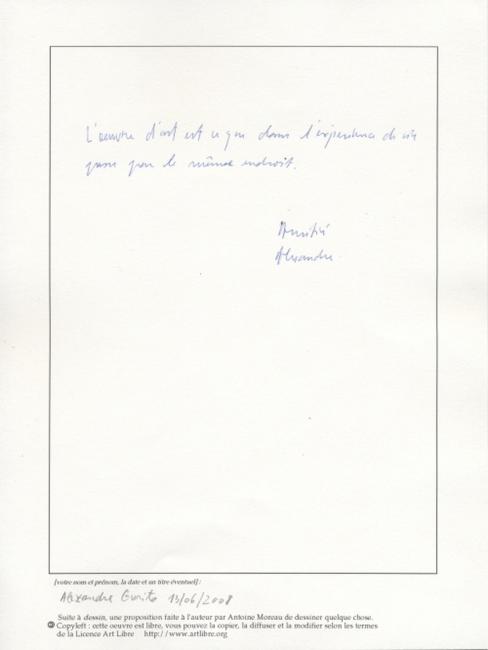 L'oeuvre d'art est ce que dans l'expérience de vie
passe par le même endroit.
Amitié
Alexandre
[votre nom et prénom, la date et un titre éventuel] :
Alexandre Gurita 13/06/2008
Suite à dessin, une proposition faite à l'auteur par Antoine Moreau de dessiner quelque chose.
Copyleft : cette oeuvre est libre, vous pouvez la copier, la diffuser et la modifier selon les termes
de la Licence Art Libre http://www.artlibre.org